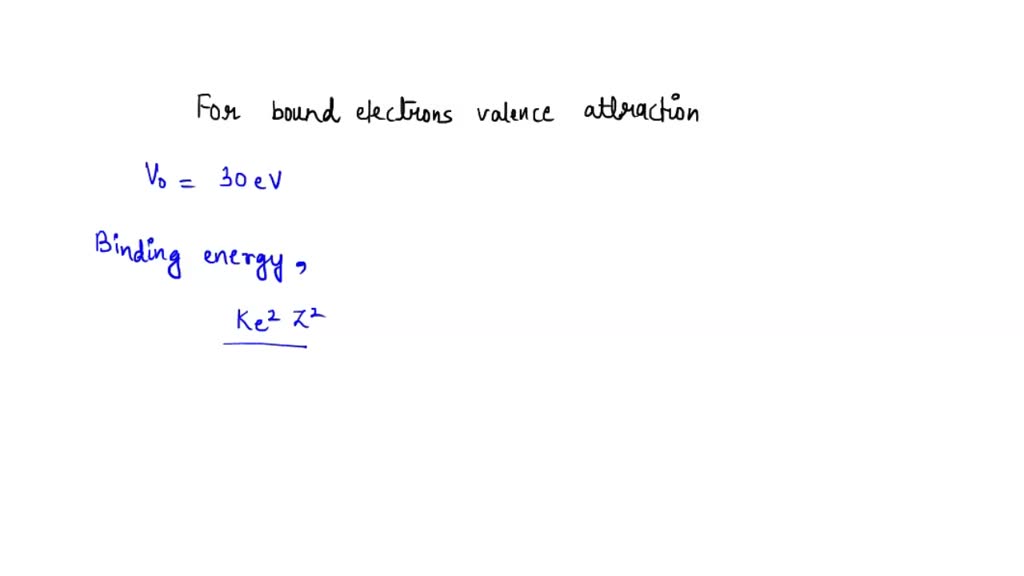 For bound electrons valence attraction
V₀ = 30 eV
Binding energy,
Ke² Z²